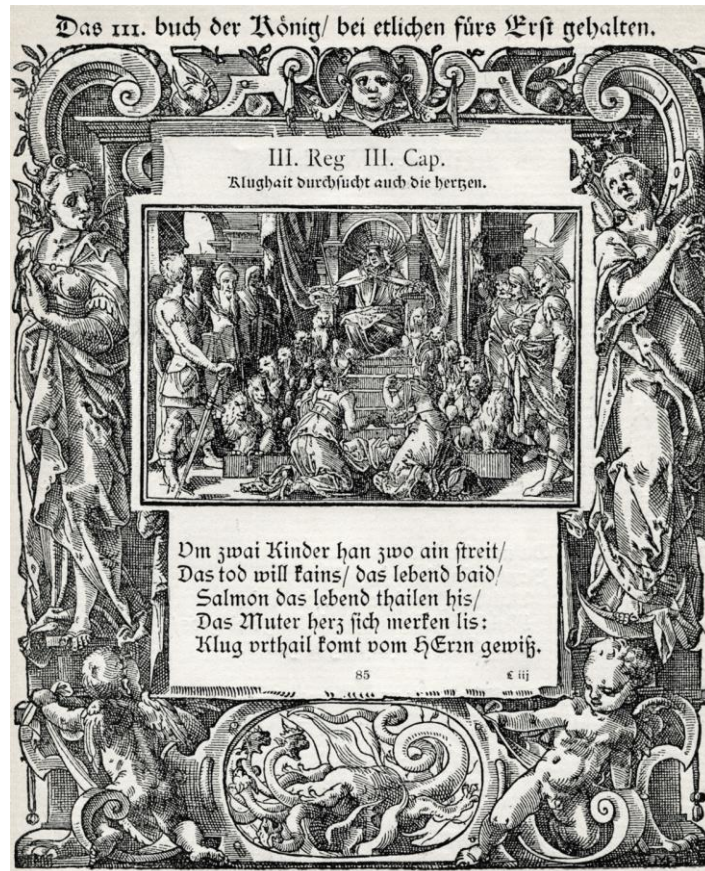 Das III. buch der König/ bei etlichen fürs Erst gehalten.
III. Reg III. Cap.
Klughait durchsucht auch die hertzen.
Vm zwai Kinder han zwo ain streit/
Das tod will kains/ das lebend baid/
Salmon das lebend thailen his/
Das Muter herz sich merken lis:
Klug vrthail komt vom HErrn gewiß.
85
£ iij